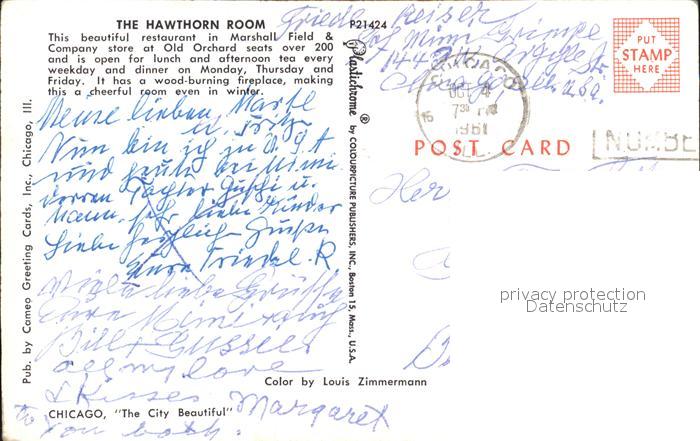 THE HAWTHORN ROOM
This beautiful restaurant in Marshall Field &
Company store at Old Orchard seats over 200
and is open for lunch and afternoon tea every
weekday and dinner on Monday, Thursday and
Friday. It has a wood-burning fireplace, making
this a cheerful room even in winter.
P21424
Reiser
Mimi
144
Argyle
Str
Chicago
U.S.A.
PUT
STAMP
HERE
CHICAGO
OCT 4
730 PM
1961
ILL.
NUMBE
POST CARD
Pub. by Cameo Greeting Cards, Inc., Chicago, Ill.
Plastichrome ® by COLOURPICTURE PUBLISHERS, INC., Boston 15, Mass., U.S.A.
Meine lieben
u. Fritz
Nun bin ich in U.S.A
und heute bei Mimi
deren Tochter u.
Mann, sehr liebe Kinder
Liebe herzliche Grüße
Eure Friedel. R
Viele liebe Grüsse
Eure Mimi
Bill +
all my love
& Kisses Margaret
to
you both.
Her
Color by Louis Zimmermann
CHICAGO, "The City Beautiful"
privacy protection
Datenschutz